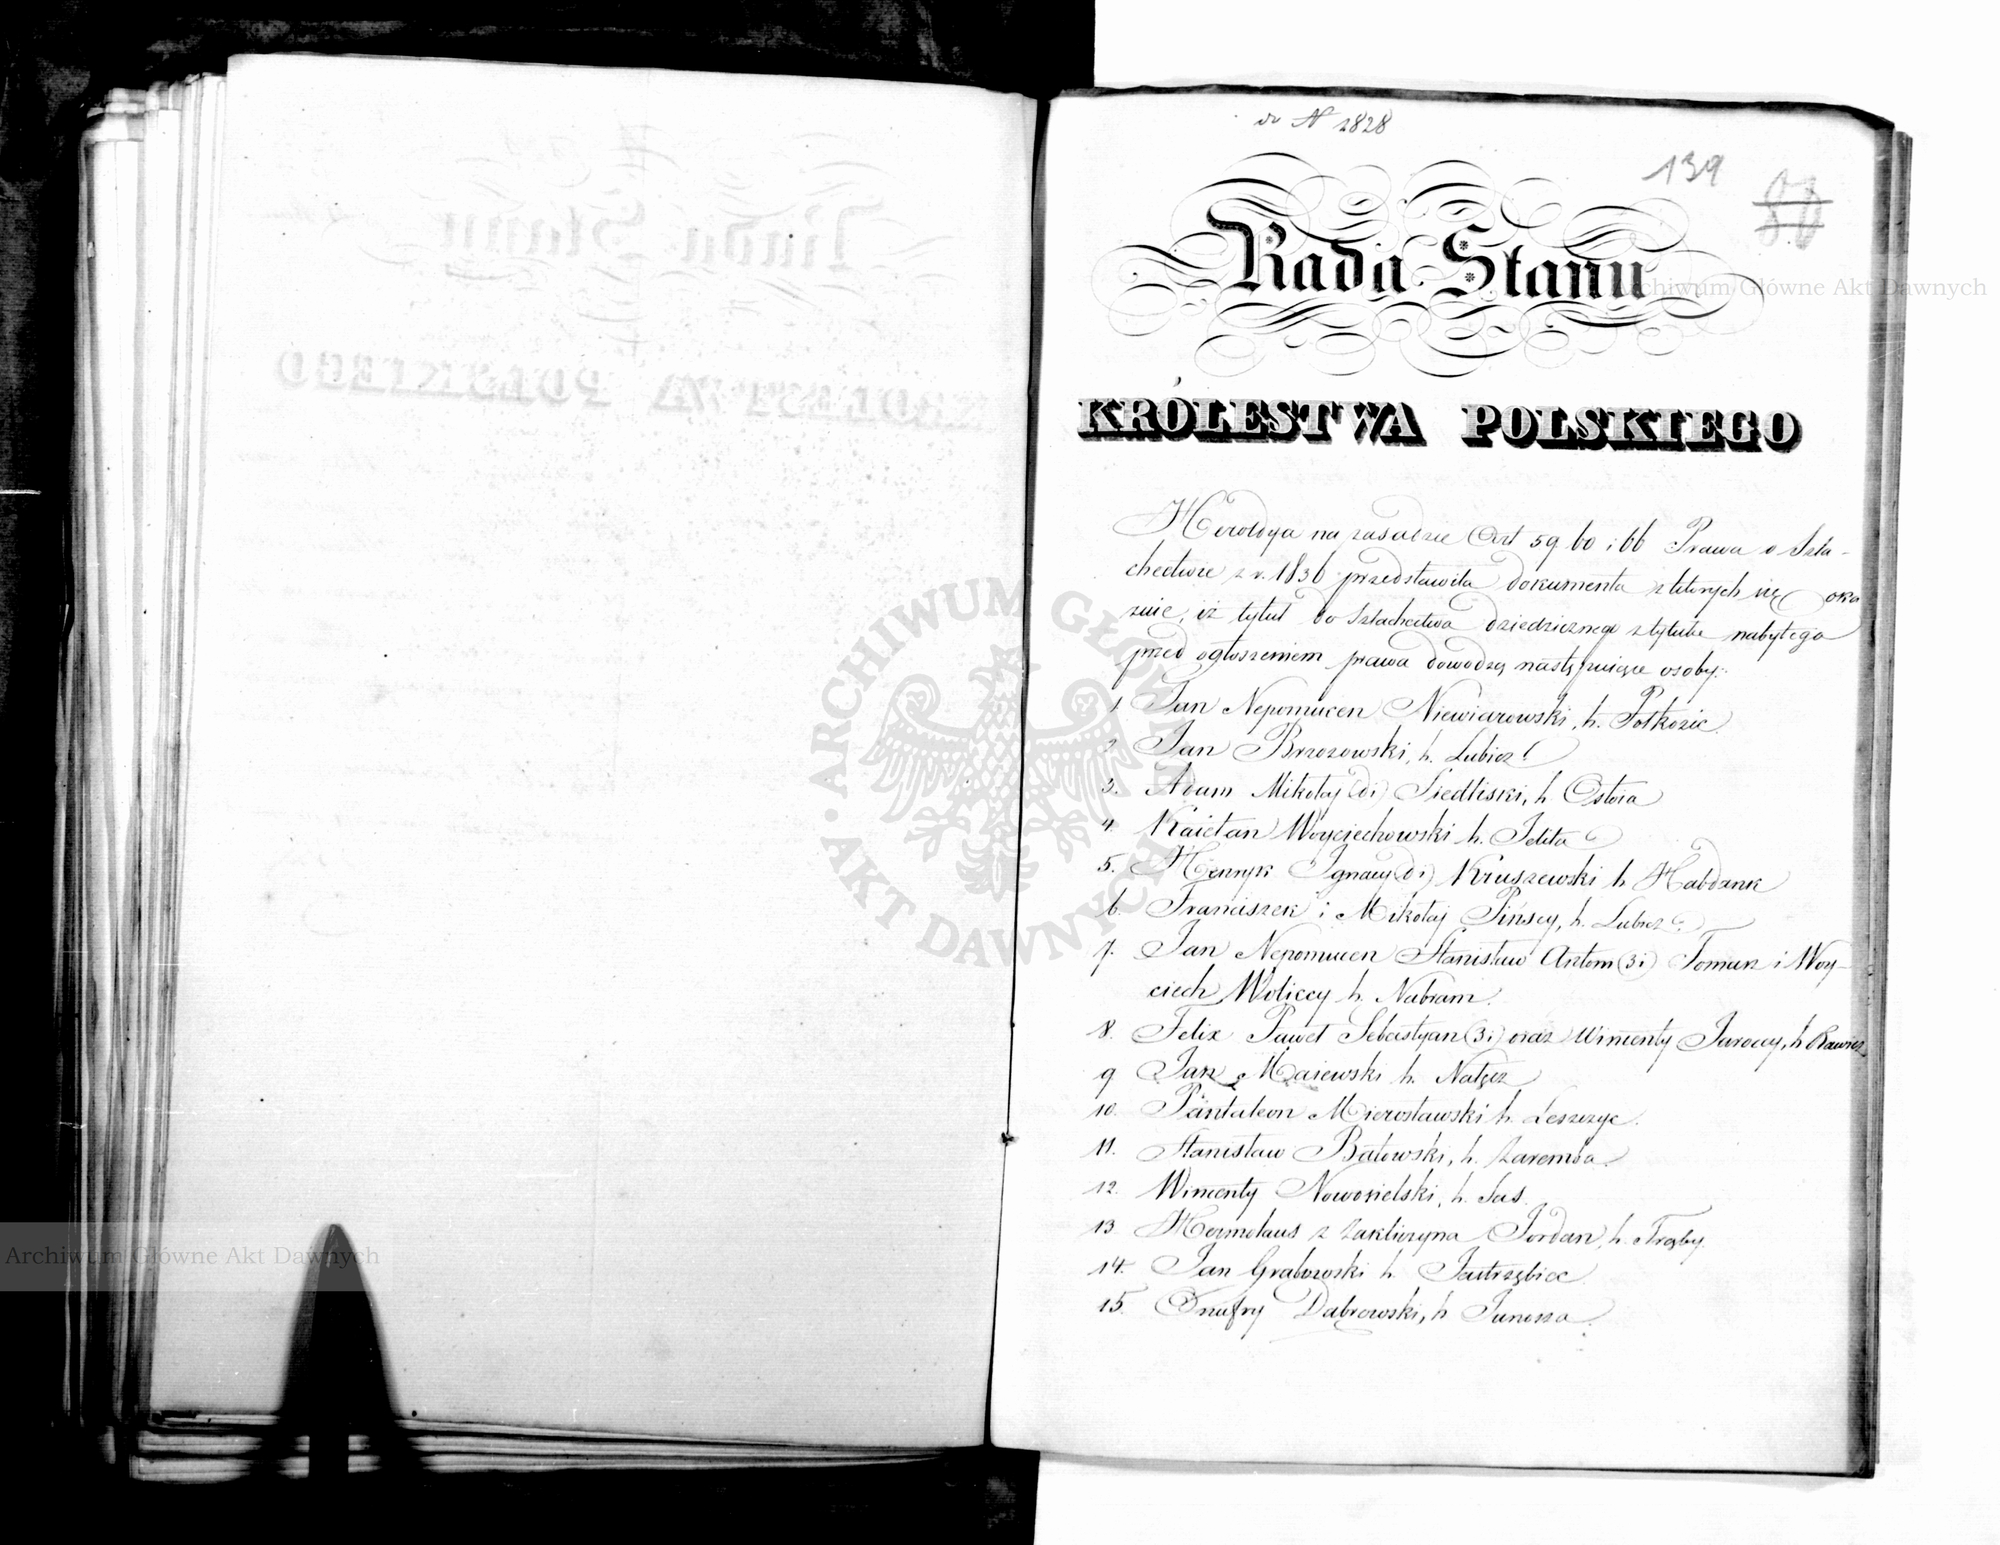 do N 2828
139
80
Rada Stanu
KRÓLESTWA POLSKIEGO
Heroldya na zasadzie Art 59 60 i 66 Prawa o Szla-
chectwie z r. 1836 przedstawiła dokumenta z których się oka
zuie, iż tytuł do Szlachectwa dziedzicznego z tytułu nabytego
przed ogłoszeniem prawa dowodzą następuiące osoby:
1 Jan Nepomucen Niewiarowski, h. Półkozic.
2 Jan Brzozowski, h. Lubicz
3. Adam Mikołaj (2i) Siedliski, h Ostoia
4. Kaietan Woyciechowski h. Jelita
5. Henryk Ignacy (2i) Kruszewski h Habdank
6. Franciszek i Mikołaj Pińscy, h. Lubicz.
7. Jan Nepomucen Stanisław Antoni (3i) Tomasz i Woy-
ciech Woliccy h. Nabram.
8. Felix Paweł Sebastyan (3i) oraz Wincenty Jaroccy, h Rawicz
9 Jan Maiewski h. Nałęcz
10. Pantaleon Mierosławski h. Leszczyc.
11. Stanisław Batowski, h. Zaremba.
12. Wincenty Nowosielski, h. Sas.
13. Hermolaus z Zakliczyna Jordan, h. Trąby.
14. Jan Grabowski h. Jastrzębiec.
15. Onufry Dąbrowski, h Junosza.
Archiwum Główne Akt Dawnych
ARCHIWUM GŁÓWNE AKT DAWNYCH
Archiwum Główne Akt Dawnych